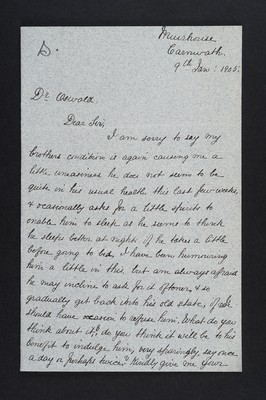 Muirhouse
Carnwath.
9th Jan: 1905.
D.
Dr Oswald.
Dear Sir,
I am sorry to say my
brothers condition is again causing me a
little uneasiness he does not seem to be
quite in his usual health this last few weeks,
& occasionally asks for a little spirits to
enable him to sleep as he seems to think
he sleeps better at nights if he takes a little
before going to bed, I have been humouring
him a little in this, but am always afraid
he may incline to ask for it oftener, & so
gradually get back into his old state, if I
should have occasion to refuse him. What do you
think about it? do you think it will be to his
benefit to indulge him, very sparingly, say once
a day or perhaps twice? Kindly give me your